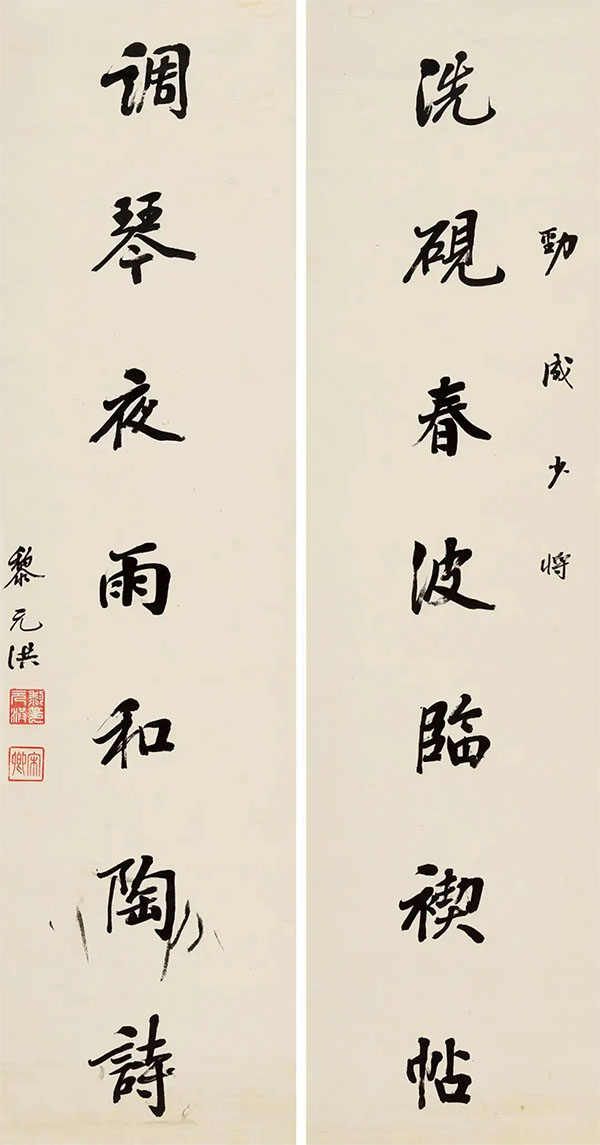 勁少將
洗硯春波臨禊帖
調琴夜雨和陶詩
黎元洪
宋卿